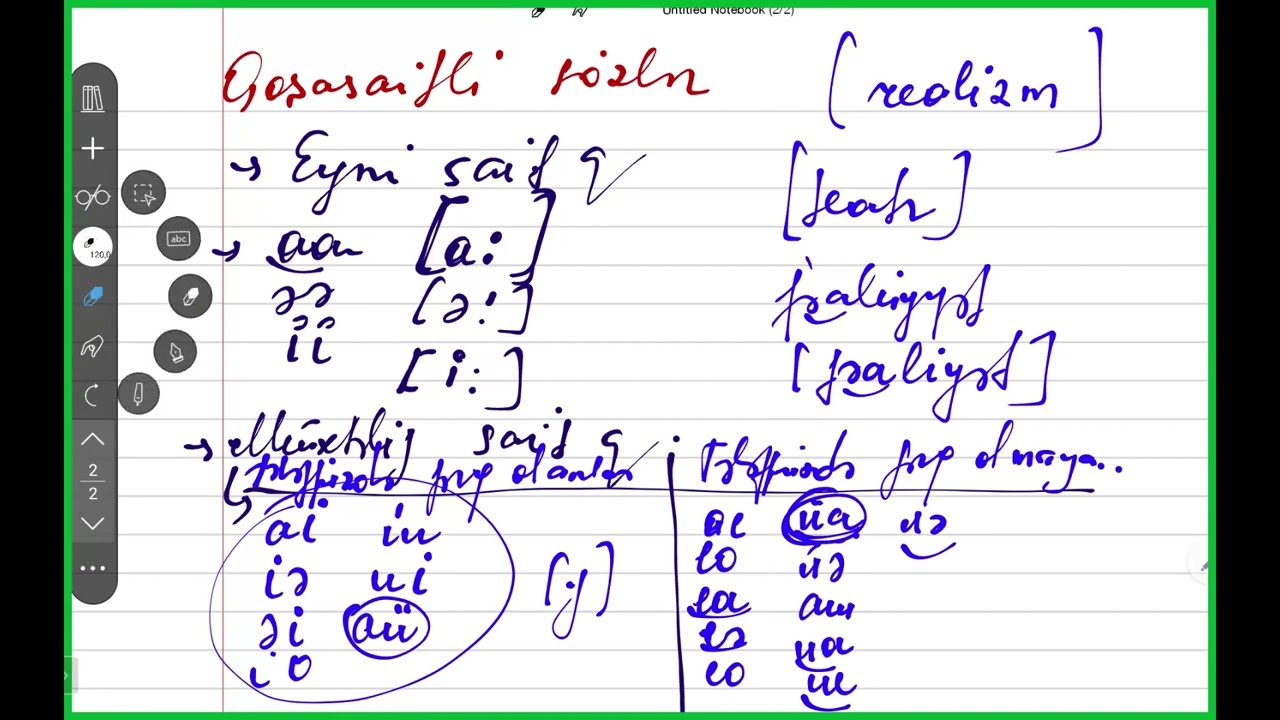 Untitled Notebook (2/2)
Qoşasaitli sözlər
[realizm]
→ Eyni sait q
[teatr]
→ aa [a:]
əə [ə:]
fəaliyyət
ii [i:]
[fəaliyət]
→ Müxtəlif sait q
tələffüzdə fərq olanlar
Tələffüzdə fərq olmaya..
ai iu
iə ui
əi aü
io
[y]
ae üa üə
eo üə
ea au
eə ua
eo ue
120.0
abc
2
2